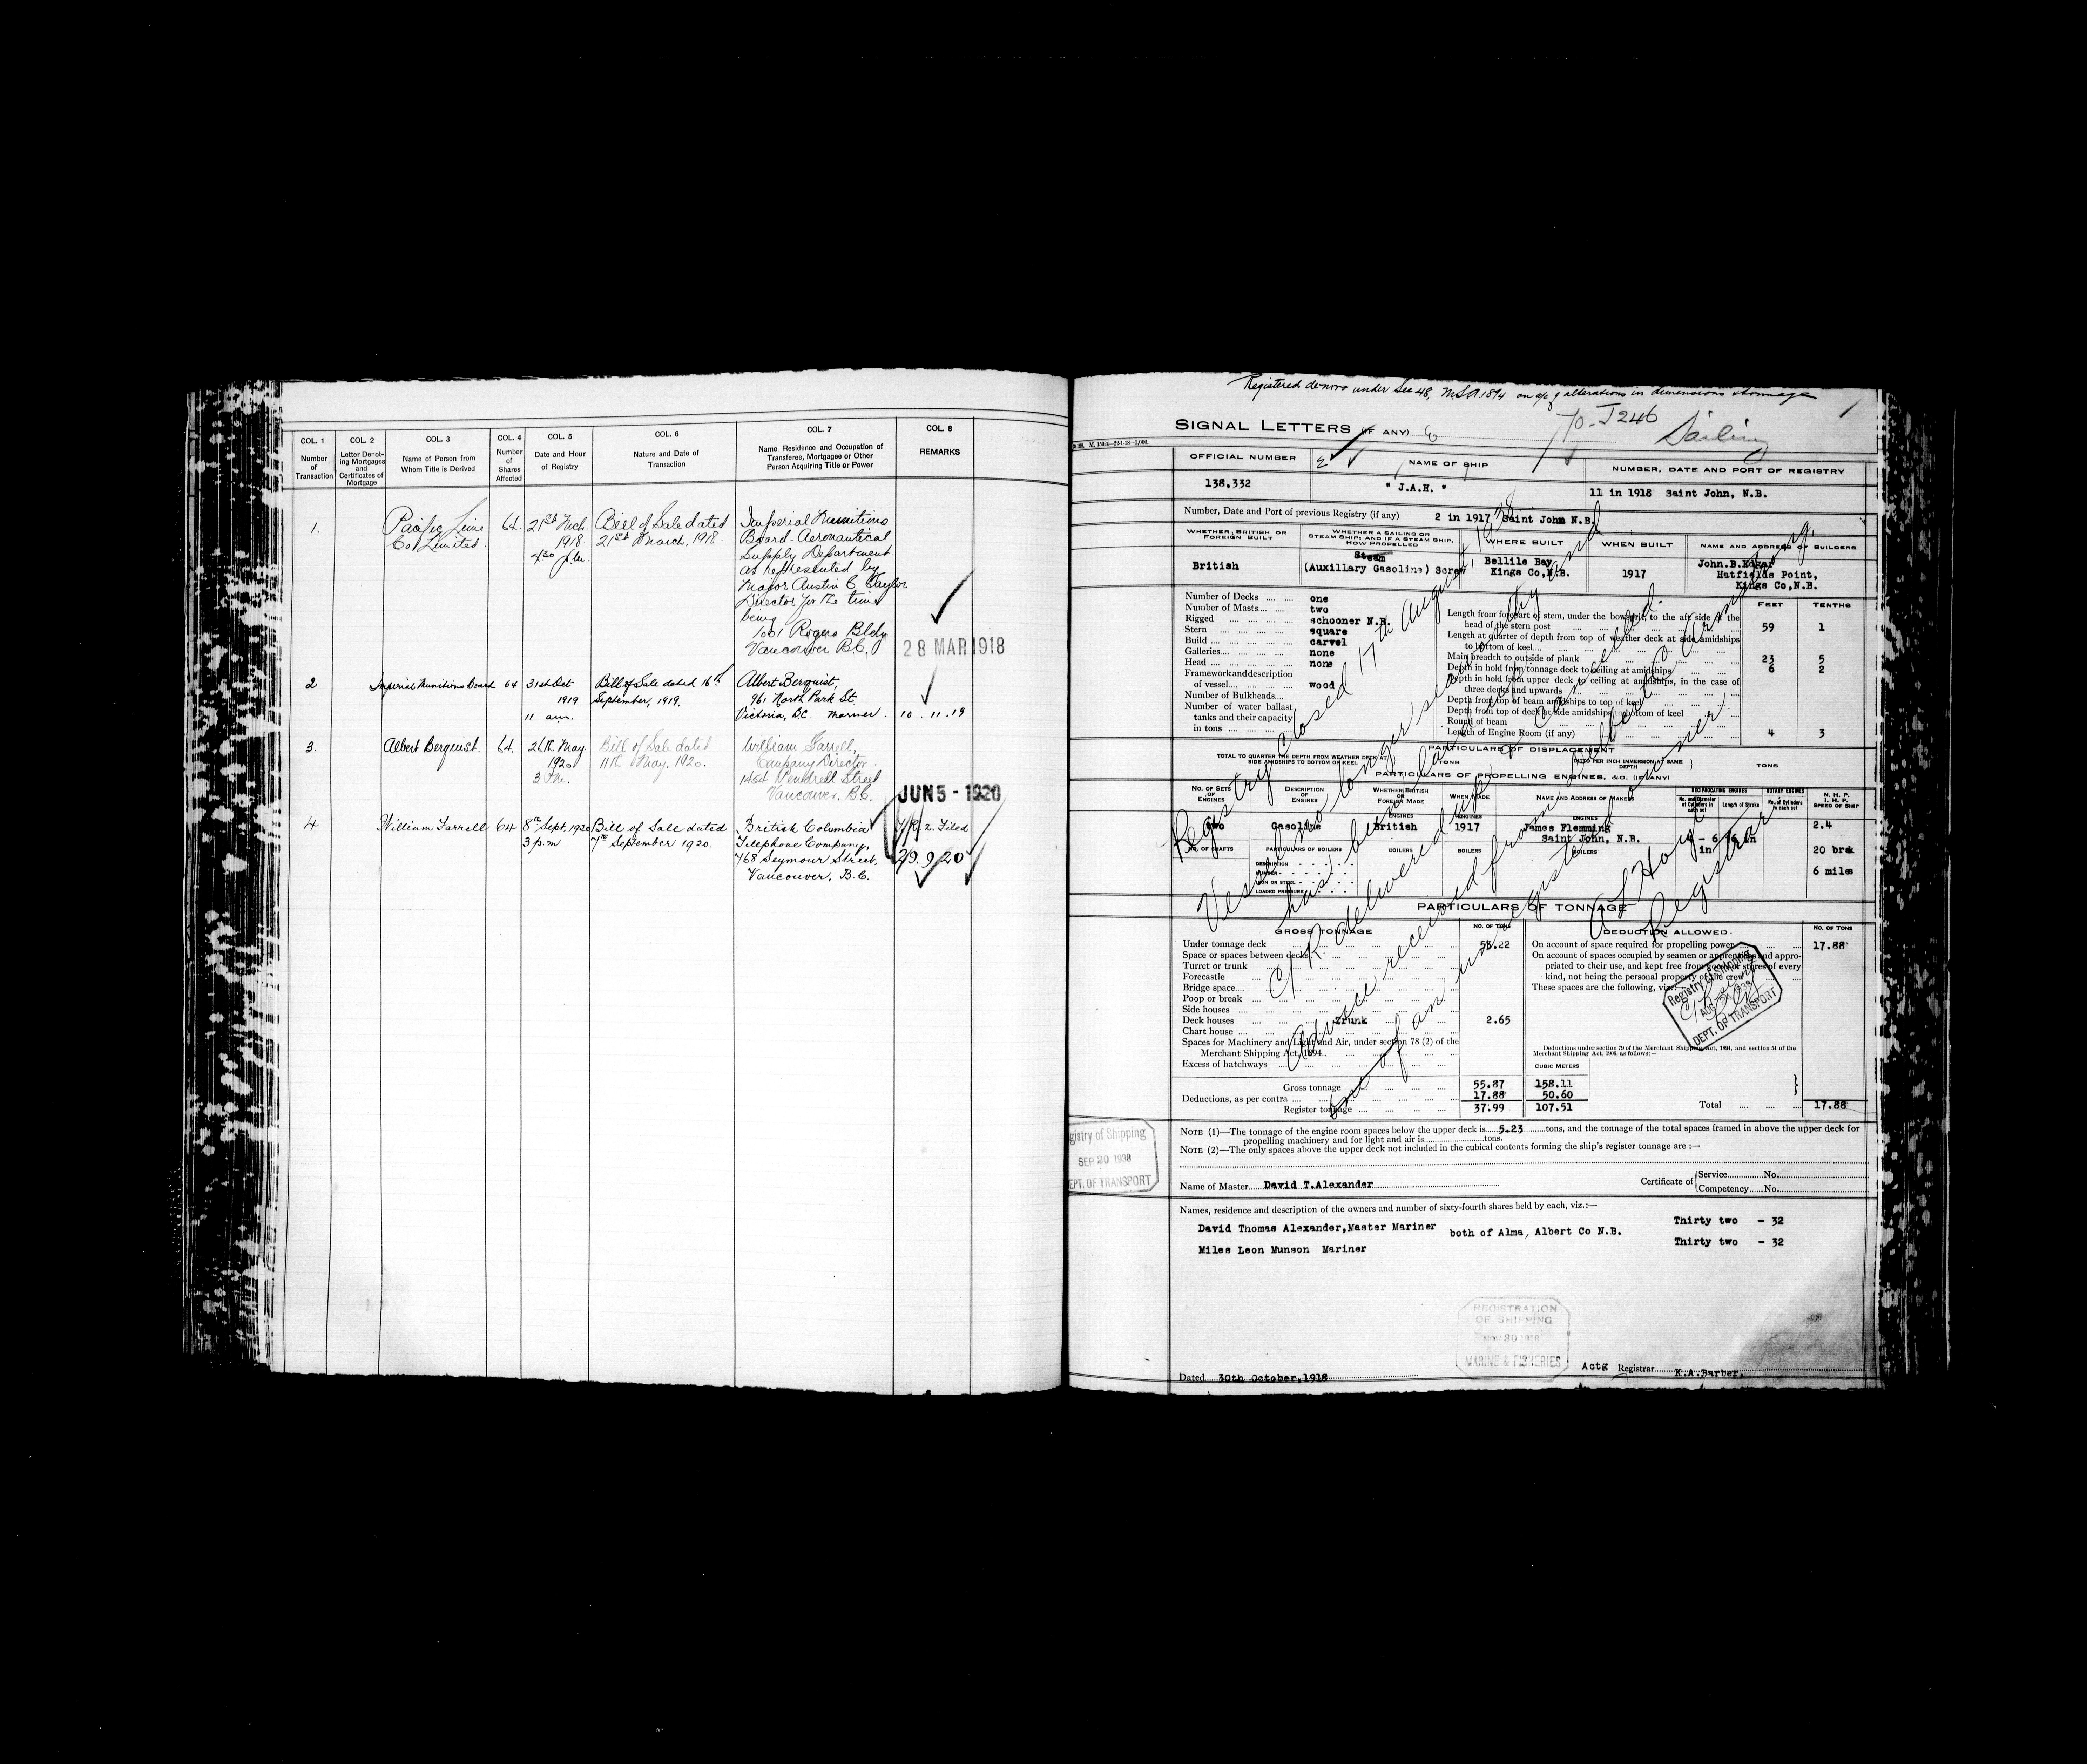 COL. 1
Number
of
Transaction
COL. 2
Letter Denot-
ing Mortgages
and
Certificates of
Mortgage
COL. 3
Name of Person from
Whom Title is Derived
COL. 4
Number
of
Shares
Affected
COL. 5
Date and Hour
of Registry
COL. 6
Nature and Date of
Transaction
COL. 7
Name Residence and Occupation of
Transferee, Mortgagee or Other
Person Acquiring Title or Power
COL. 8
REMARKS
1.
Pacific Lime
Co. Limited.
64.
21st Mch.
1918.
4.30 p.m.
Bill of Sale dated
21st March, 1918.
Imperial Munitions
Board-Aeronautical
Supply Department
as represented by
Major Austin C. Taylor
Director for the time
being
1001 Rogers Bldg
Vancouver B.C.
28 MAR 1918
2
Imperial Munitions Board
64
31st Oct
1919
11 am.
Bill of Sale dated 16th
September, 1919.
Albert Berquist,
961 North Park St.
Victoria, B.C. Mariner.
10.11.19
3.
Albert Berquist.
64.
26th May.
1920
3 P.M.
Bill of Sale dated
11th May, 1920.
William Farrell,
Company Director.
1454 Pendrell Street
Vancouver, B.C.
JUN 5 - 1920
4
William Farrell
64
8th Sept, 1920
3 p.m
Bill of Sale dated
7th September 1920.
British Columbia
Telephone Company,
768 Seymour Street.
Vancouver, B.C.
Filed
29.9.20
Registered de-novo under Sec 48, MSA 1894 on a/c of alterations in dimensions & tonnage
1
SIGNAL LETTERS (IF ANY)
To J246
Sailing
OFFICIAL NUMBER
NAME OF SHIP
NUMBER, DATE AND PORT OF REGISTRY
138,332
" J.A.H. "
11 in 1918 Saint John, N.B.
Number, Date and Port of previous Registry (if any)
2 in 1917 Saint John N.B.
WHETHER BRITISH OR
FOREIGN BUILT
WHETHER A SAILING OR
STEAM SHIP; AND IF A STEAM SHIP,
HOW PROPELLED
WHERE BUILT
WHEN BUILT
NAME AND ADDRESS OF BUILDERS
British
Steam
(Auxillary Gasoline) Screw
Bellile Bay
Kings Co,N.B.
1917
John.B.Edgar
Hatfields Point,
Kings Co,N.B.
Number of Decks one
Number of Masts two
Rigged schooner N.B.
Stern square
Build carvel
Galleries none
Head none
Framework and description
of vessel wood
Number of Bulkheads
Number of water ballast
tanks and their capacity
in tons
FEET TENTHS
Length from forepart of stem, under the bowsprit, to the aft side of the
head of the stern post 59 1
Length at quarter of depth from top of weather deck at side amidships
to bottom of keel
Main breadth to outside of plank 23 5
Depth in hold from tonnage deck to ceiling at amidships 6 2
Depth in hold from upper deck to ceiling at amidships, in the case of
three decks and upwards
Depth from top of beam amidships to top of keel
Depth from top of deck at side amidships to bottom of keel
Round of beam
Length of Engine Room (if any) 4 3
PARTICULARS OF DISPLACEMENT
TOTAL TO QUARTER THE DEPTH FROM WEATHER DECK AT
SIDE AMIDSHIPS TO BOTTOM OF KEEL.
TONS
DITTO PER INCH IMMERSION AT SAME
DEPTH
TONS
PARTICULARS OF PROPELLING ENGINES, &C. (IF ANY)
NO. OF SETS
OF
ENGINES
DESCRIPTION
OF
ENGINES
WHETHER BRITISH
OR
FOREIGN MADE
WHEN MADE
NAME AND ADDRESS OF MAKERS
RECIPROCATING ENGINES
ROTARY ENGINES
N. H. P.
I. H. P.
SPEED OF SHIP
ENGINES
ENGINES
ENGINES
two
Gasoline
British
1917
James Flemming
Saint John, N.B.
2.4
20 brk
6 miles
NO. OF SHAFTS
PARTICULARS OF BOILERS
BOILERS
BOILERS
BOILERS
DESCRIPTION
NUMBER
IRON OR STEEL
LOADED PRESSURE
PARTICULARS OF TONNAGE
GROSS TONNAGE
NO. OF TONS
DEDUCTION ALLOWED.
NO. OF TONS
Under tonnage deck 53.22
Space or spaces between decks
Turret or trunk
Forecastle
Bridge space
Poop or break
Side houses
Deck houses Trunk 2.65
Chart house
Spaces for Machinery and Light and Air, under section 78 (2) of the
Merchant Shipping Act, 1894
Excess of hatchways
On account of space required for propelling power 17.88
On account of spaces occupied by seamen or apprentices and appro-
priated to their use, and kept free from goods or stores of every
kind, not being the personal property of the crew
These spaces are the following, viz:—
Deductions under section 79 of the Merchant Shipping Act, 1894, and section 54 of the
Merchant Shipping Act, 1906, as follows:—
CUBIC METERS
Gross tonnage 55.87 158.11
Deductions, as per contra 17.88 50.60
Register tonnage 37.99 107.51
Total 17.88
Registry closed 17th August 1938
Vessel no longer seaworthy and
has been laid up
C/R delivered up & cancelled.
Advice received from Gilbert C. Armstrong
son of an unregistered owner
Registrar
Registry of Shipping
DEPT. OF TRANSPORT
NOTE (1)—The tonnage of the engine room spaces below the upper deck is 5.23 tons, and the tonnage of the total spaces framed in above the upper deck for
propelling machinery and for light and air is tons.
NOTE (2)—The only spaces above the upper deck not included in the cubical contents forming the ship's register tonnage are :—
Registry of Shipping
SEP 20 1938
DEPT. OF TRANSPORT
Name of Master David T.Alexander
Certificate of
Service No.
Competency No.
Names, residence and description of the owners and number of sixty-fourth shares held by each, viz.:—
David Thomas Alexander,Master Mariner
both of Alma, Albert Co N.B.
Thirty two - 32
Miles Leon Munson Mariner
Thirty two - 32
REGISTRATION
OF SHIPPING
NOV 30 1918
MARINE & FISHERIES
Dated 30th October,1918
Actg Registrar K.A.Barber.